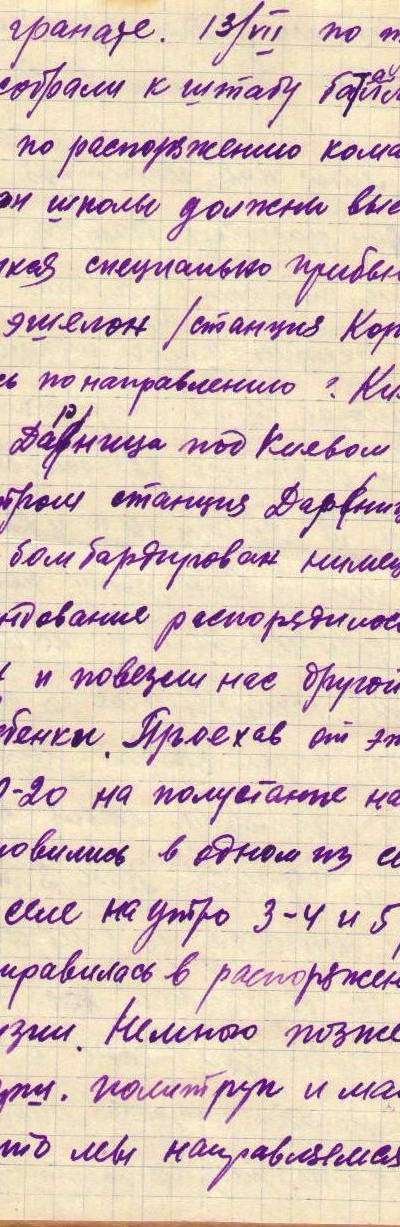 гранате. 13/VII по т
собрали к штабу батал
по распоряжению кома
он школы должны выс
кая специально прибы
эшелон /станция Кор
сь по направлению г. Ки
Дарница под Киевом
тром станция Дарниц
бомбардирован нимец
ндование распорядилось
и повезли нас другой
бенки. Проехав от эт
0-20 на полустанке на
новились в одном из се
селе на утро 3-4 и 5
правилась в распоряжен
изии. Немного позже
политрук и ма
что мы направляемся